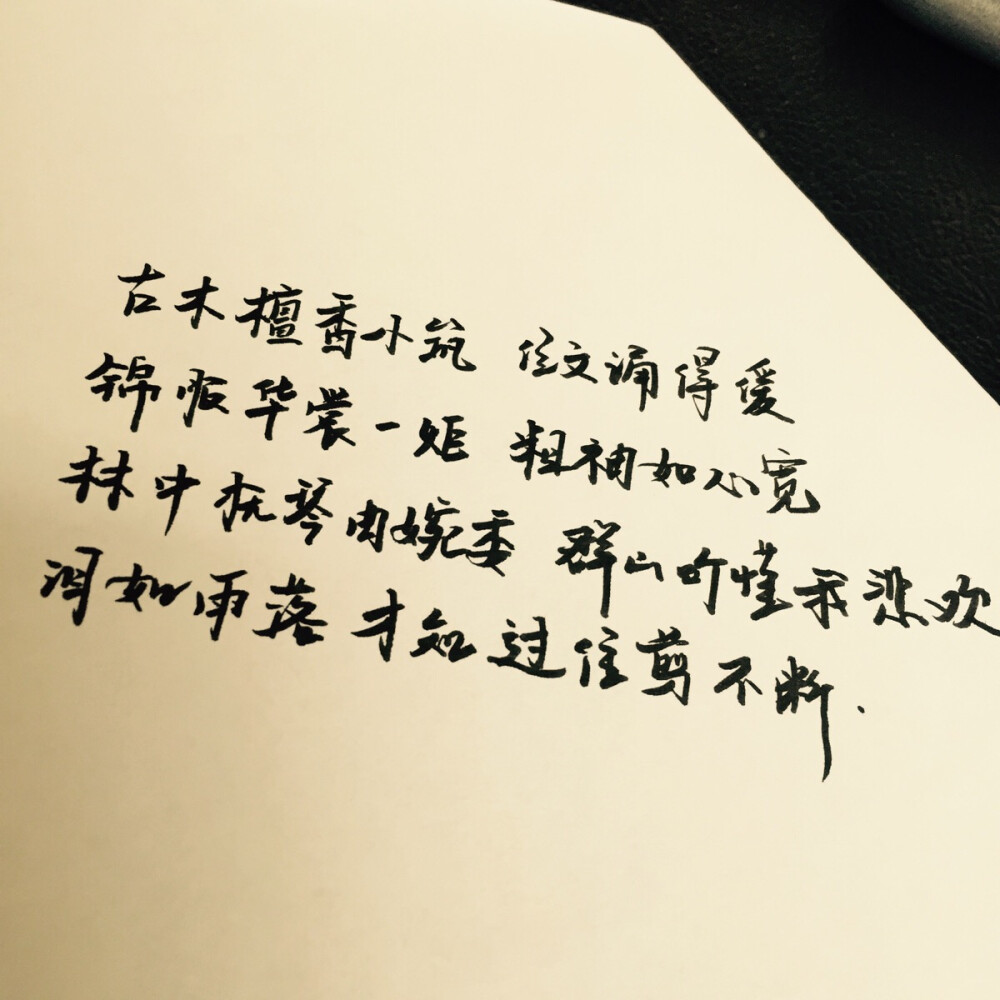 古木檀香小筑 信文涌得爱
锦服华裳一炬 粗袖如心宽
林中抚琴肉婉委 群山吟懂我悲欢
泪如雨落 才知过往剪不断.